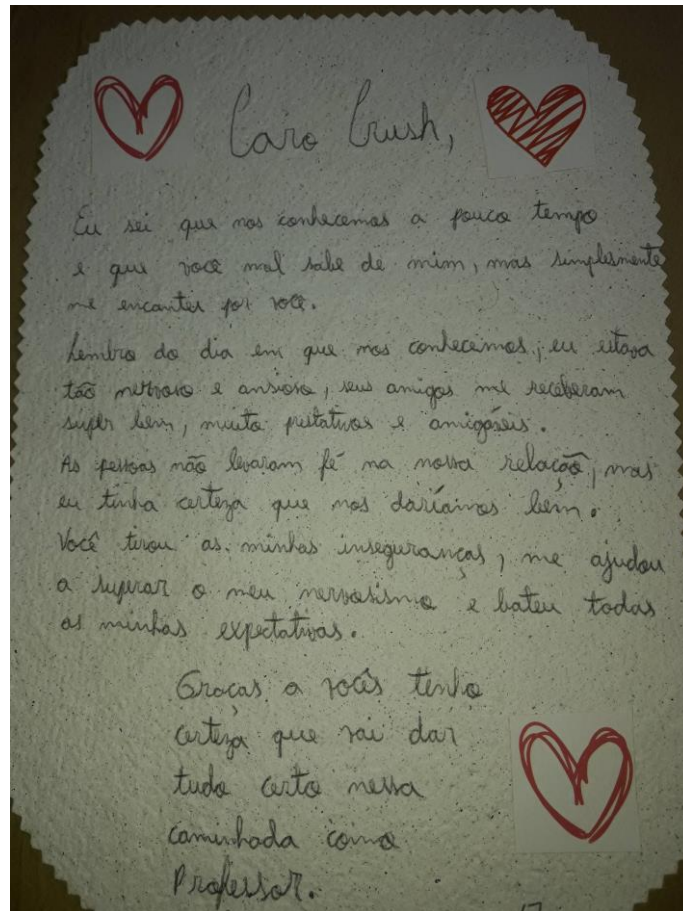 Caro Crush,
Eu sei que nos conhecemos a pouco tempo
e que você mal sabe de mim, mas simplesmente
me encantei por você.
Lembro do dia em que nos conhecemos, eu estava
tão nervoso e ansioso, seus amigos me receberam
super bem, muito prestativos e amigáveis.
As pessoas não levaram fé na nossa relação, mas
eu tinha certeza que nos daríamos bem.
Você tirou as minhas inseguranças, me ajudou
a superar o meu nervosismo e bateu todas
as minhas expectativas.
Graças a vocês tenho
certeza que vai dar
tudo certo nessa
caminhada como
Professor.